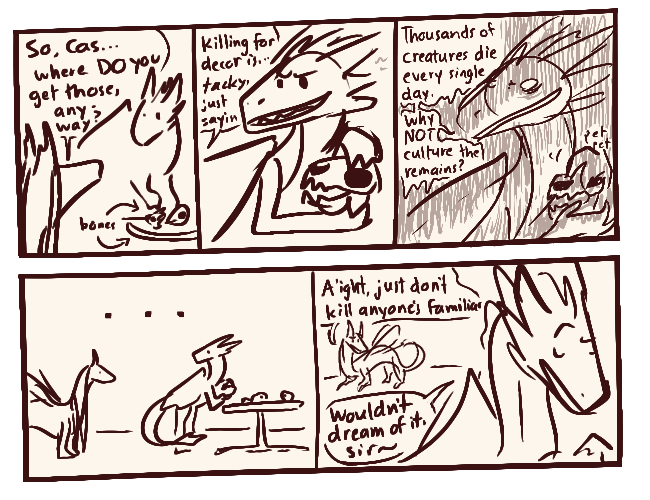 So, Cas...
where DO you
get those,
any-
way?
bones
Killing for
decor is...
tacky,
just
sayin
Thousands of
creatures die
every single
day.
Why
NOT
culture the
remains?
pet
pet
...
A'ight, just don't
kill anyone's familiar
Wouldn't
dream of it,
sir~